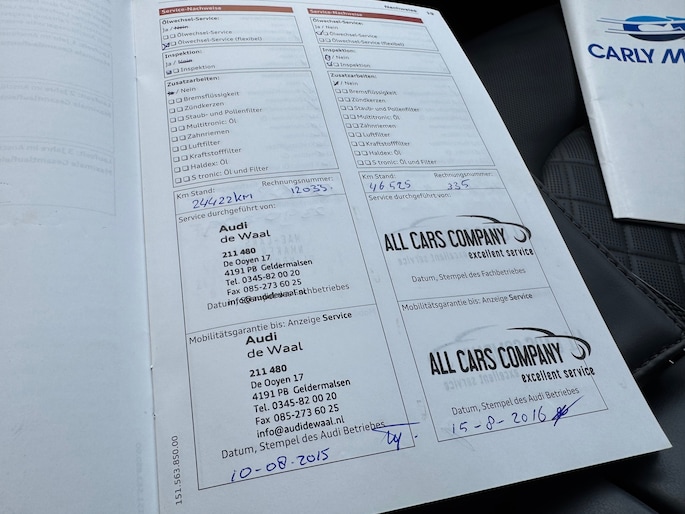 Service-Nachweise
Ölwechsel-Service:
Ja / Nein
Ölwechsel-Service
Ölwechsel-Service (flexibel)
Inspektion:
Ja /
Inspektion
Zusatzarbeiten:
/ Nein
Bremsflüssigkeit
Zündkerzen
Staub- und Pollenfilter
Multitronic: Öl
Zahnriemen
Luftfilter
Kraftstofffilter
Haldex: Öl
S tronic: Öl und Filter
Km Stand: Rechnungsnummer:
24422km 12033.
Service durchgeführt von:
Audi
de Waal
211 480
De Ooyen 17
4191 PB Geldermalsen
Tel. 0345-82 00 20
Fax 085-273 60 25
info@audidewaal.nl
Datum, Stempel des Fachbetriebes
Mobilitätsgarantie bis: Anzeige Service
Audi
de Waal
211 480
De Ooyen 17
4191 PB Geldermalsen
Tel. 0345-82 00 20
Fax 085-273 60 25
info@audidewaal.nl
Datum, Stempel des Audi Betriebes
10-08-2015
151.563.850.00
Nachweise
Service-Nachweise
Ölwechsel-Service:
Ja / Nein
Ölwechsel-Service
Ölwechsel-Service (flexibel)
Inspektion:
/ Nein
Inspektion
Zusatzarbeiten:
/ Nein
Bremsflüssigkeit
Zündkerzen
Staub- und Pollenfilter
Multitronic: Öl
Zahnriemen
Luftfilter
Kraftstofffilter
Haldex: Öl
S tronic: Öl und Filter
Km Stand: Rechnungsnummer:
46525 235
Service durchgeführt von:
ALL CARS COMPANY
excellent service
Datum, Stempel des Fachbetriebes
Mobilitätsgarantie bis: Anzeige Service
ALL CARS COMPANY
excellent service
Datum, Stempel des Audi Betriebes
15-8-2016
CARLY M